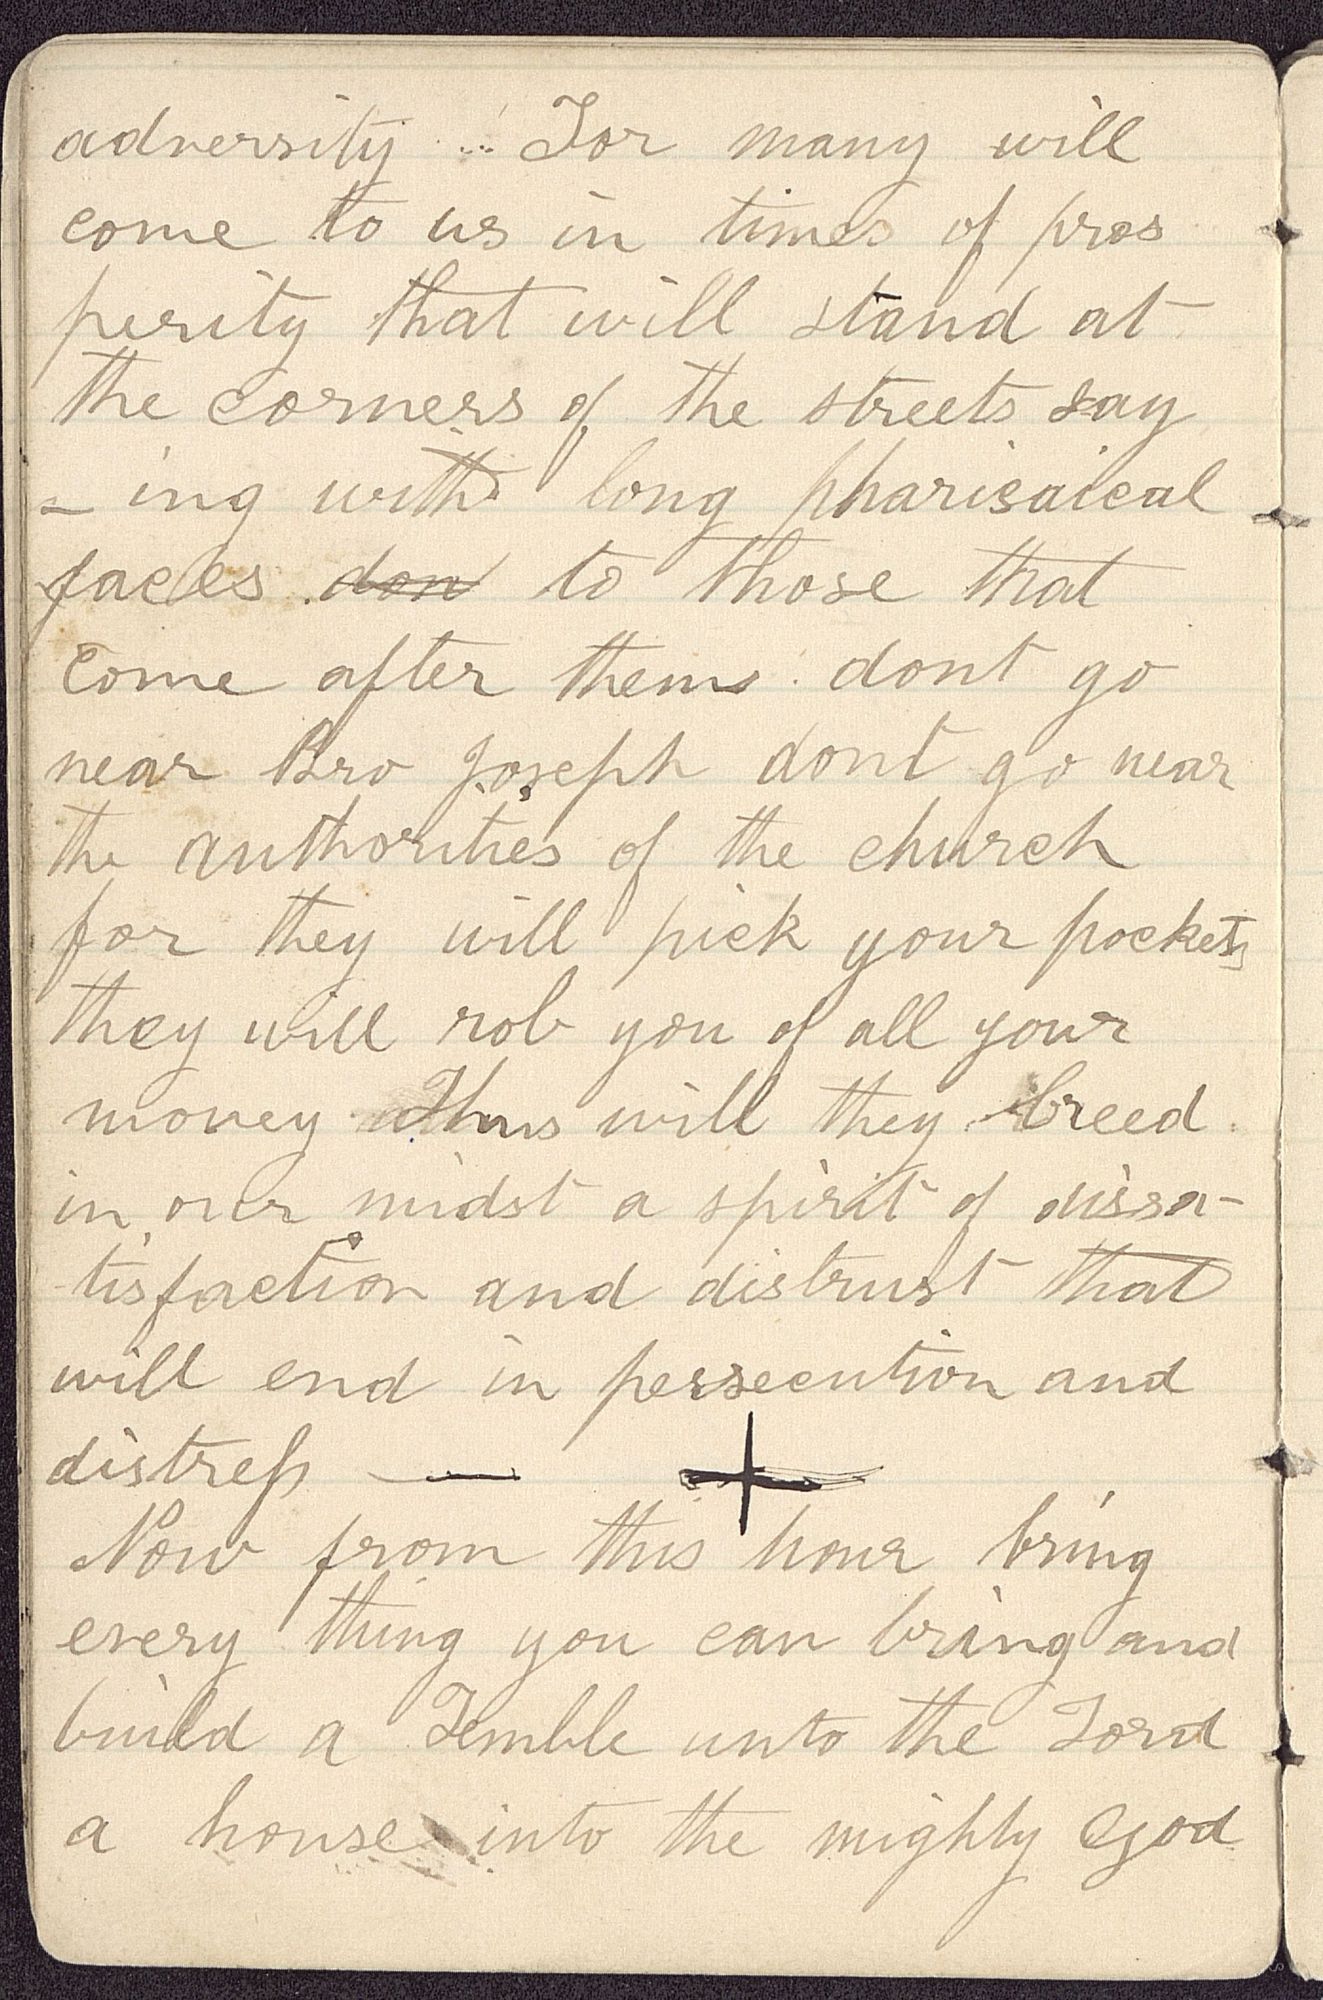 adversity .. For many will
come to us in times of pros
perity that will stand at
the corners of the streets say
- ing with long pharisaical
faces don to those that
come after them dont go
near Bro Joseph dont go near
the authorities of the church
for they will pick your pockets
they will rob you of all your
money Thus will they breed
in our midst a spirit of dissa-
tisfaction and distrust that
will end in persecution and
distress — +
Now from this hour bring
every thing you can bring and
build a Temble unto the Lord
a house into the mighty God